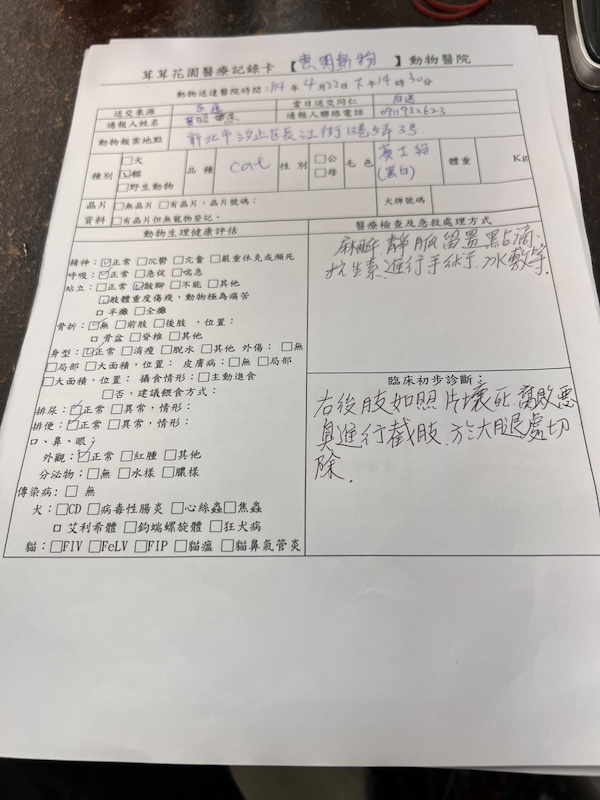 茸茸花園醫療記錄卡 【惠明動物】動物醫院
動物送達醫院時間:114年4月22日下午14時30分
送交來源 當日送交同仁 自送
通報人姓名 通報人聯絡電話
動物報案地點 新北市汐止區長江街 號5年3号
種別 □犬 ☑貓 □野生動物 品種 cat 性別 □公 □母 毛色 賓士貓 (黑白) 體重 Kg
晶片 □無晶片 □有晶片,晶片號碼: 犬牌號碼
資料 □有晶片但無寵物登記。
動物生理健康評估 醫療檢查及急救處理方式
精神:☑正常 □沉鬱 □亢奮 □嚴重休克或瀕死
呼吸:☑正常 □急促 □喘息
站立:□正常 ☑跛腳 □不能 □其他
☑肢體重度傷殘,動物極為痛苦
□半癱 □全癱
骨折:☑無 □前肢 □後肢 ,位置:
□骨盆 □脊椎 □其他
身型:☑正常 □消瘦 □脫水 □其他 外傷:□無
□局部 □大面積,位置: 皮膚病:□無 □局部
□大面積,位置: 攝食情形:□主動進食
□否,建議餵食方式:
排尿:☑正常 □異常,情形:
排便:☑正常 □異常,情形:
口、鼻、眼:
外觀:☑正常 □紅腫 □其他
分泌物:□無 □水樣 □膿樣
傳染病:□ 無
犬:□CD □病毒性腸炎 □心絲蟲 □焦蟲
□ 艾利希體 □鉤端螺旋體 □狂犬病
貓:□FIV □FeLV □FIP □貓瘟 □貓鼻氣管炎
麻醉.靜脈留置點滴.
抗生素.進行手術.冰敷等.
臨床初步診斷:
右後肢如照片壞死.腐敗惡
臭進行截肢.於大腿處切
除.